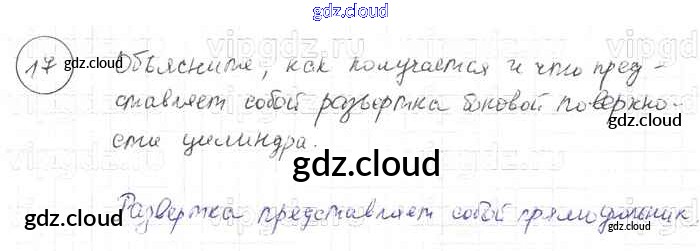 gdz.cloud
17 Объясните, как получается и что пред-
gdz.cloud gdz.cloud
ставляет собой развертка боковой поверхно-
gdz.cloud
сти цилиндра.
gdz.cloud
Развертка представляет собой прямоугольник.
gdz.cloud gdz.cloud